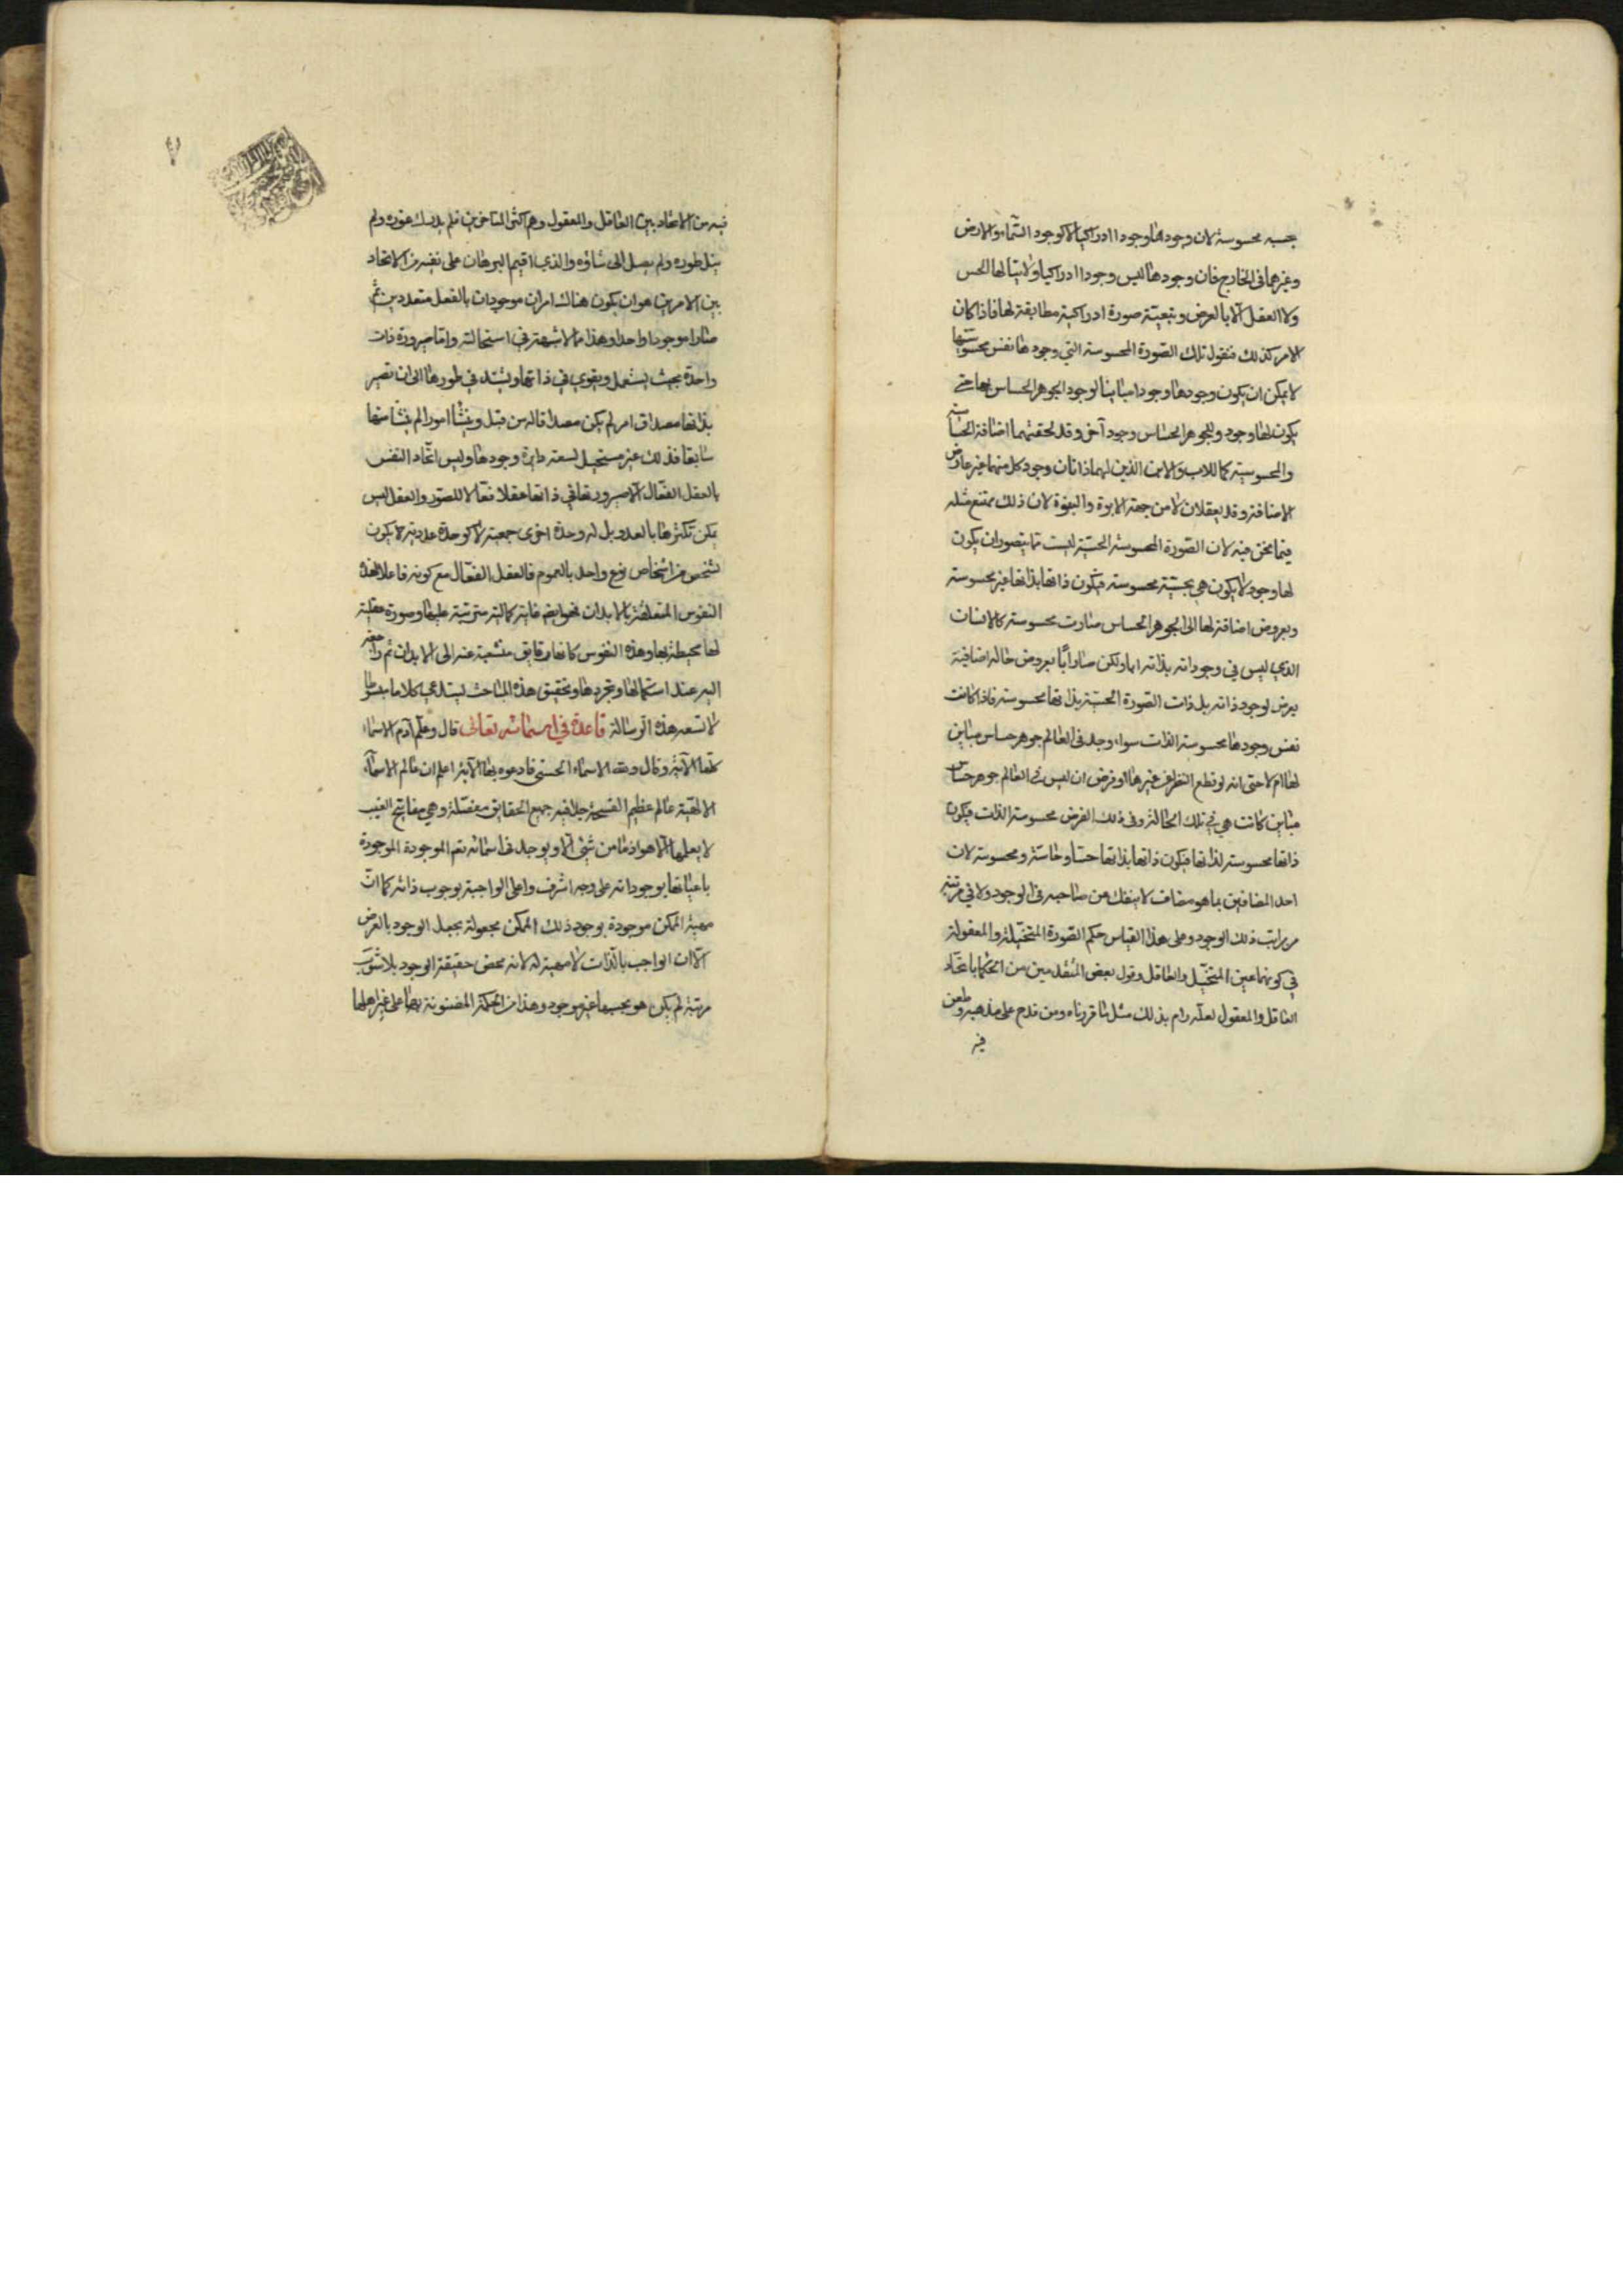 بحسبه محسوسة لان وجودها وجودا ادراكيا لا كوجود السّماء والارض
وغيرهما فى الخارج فان وجودها ليس وجودا ادراكيا ولا ينالها الحس
ولا العقل الّا بالعرض وبتبعيّة صورة ادراكية مطابقة لها فاذا كان
الامر كذلك فنقول تلك الصّورة المحسوسة التي وجودها نفس محسوسيّتها
لا يمكن ان يكون وجودها وجودا مباينا لوجود الجوهر الحساس بها حتى
يكون لها وجود وللجوهر الحساس وجود آخر وقد لحقتهما اضافة الحسّاسية
والمحسوسية كما للاب والابن الذين لهما ذاتان وجود كل منهما غير عارض
الاضافة وقد يعقلان لا من جهة الابوة والبنوة لان ذلك ممتنع مثله
فيما نحن فيه لان الصّورة المحسوسة الحسّيّة ليست مما يتصور ان يكون
لها وجود لا يكون هي بحسبه محسوسة فيكون ذاتها بذاتها غير محسوسة
وبعروض اضافة لها الى الجوهر الحساس صارت محسوسة كالانسان
الذي ليس في وجود ذاته بذاته ابا ولكن صار ابًا بعروض حالة اضافية
يعرض لوجود ذاته بل ذات الصّورة الحسّيّة بذاتها محسوسة فاذا كانت
نفس وجودها محسوسة الذات سواء وجد فى العالم جوهر حساس مباين
لها ام لا حتى انه لو قطع النظر عن غيرها او فرض ان ليس فى العالم جوهر حسّاس
مباين كانت هي في تلك الحالة وفى ذلك الفرض محسوسة الذات فيكون
ذاتها محسوسة لذاتها فيكون ذاتها بذاتها حسّا وحاسّة ومحسوسة لان
احد المضافين بما هو مضاف لا ينفك عن صاحبه فى الوجود ولا في مرتبة
من مراتب ذلك الوجود وعلى هذا القياس حكم الصّورة المتخيّلة والمعقولة
في كونهما عين المتخيّل والعاقل وقول بعض المتقدمين من الحكما باتحاد
العاقل والمعقول لعله رام بذلك مثل ما قررناه ومن قدح على مذهبه وطعن
فيه
فيه من الاتحاد بين العاقل والمعقول وهم اكثر المتاخرين فلم يدرك غوره ولم
ينل طوره ولم يصل الى شاؤه والذي اقيم البرهان على نفيه من الاتحاد
بين الامرين هو ان يكون هناك امران موجودان بالفعل متعددين ثم
صارا موجودا واحدا وهذا مما لا شبهة في استحالته واما صيرورة ذات
واحدة بحيث يستكمل ويقوى في ذاتها ويشتد في طورها الى ان تصير
بذاتها مصداق امر لم يكن مصداقا له من قبل وينشأ امور الم ينشا منها
سابقا فذلك غير مستحيل لسعة دايرة وجودها وليس اتّحاد النفس
بالعقل الفعّال الّا صيرورتها في ذاتها عقلا فعّالا للصّور والعقل ليس
يمكن تكثرها بالعدد بل له وحدة اخرى جمعية لا كوحدة عددية لا يكون
شخص من اشخاص نوع واحد بالعموم فالعقل الفعّال مع كونه فاعلا لهذه
النفوس المتعلقة بالابدان فهو ايضا غاية كمالية مترتبة عليها وصورة عقلية
لها محيطة بها وهذه النفوس كانها رقايق منشعبة عنه الى الابدان ثم راجعة
اليه عند استكمالها وتجردها وتحقيق هذه المباحث ليستدعي كلاما مبسوطا
لا تسعه هذه الرسالة قاعدة في اسمائه تعالى قال وعلّم آدم الاسماء
كلها الآية وقال ولله الاسماء الحسنى فادعوه بها الآية اعلم ان عالم الاسماء
الالهيّة عالم عظيم الفسحة جدا فيه جميع الحقايق مفصّلة وهي مفاتيح الغيب
لا يعلمها الّا هو اذ ما من شئ الّا ويوجد فى اسمائه تعم الموجودة الموجودة
باعيانها بوجود ذاته على وجه اشرف واعلى الواجبة بوجوب ذاته كما انّ
مهية الممكن موجودة بوجود ذلك الممكن مجعولة بجعل الوجود بالعرض
الّا ان الواجب بالذات لا مهية له لانه محض حقيقة الوجود بلا شوب
مرتبة لم يكن هو بحسبها غير موجود وهذا من الحكمة المضنونة بها على غير اهلها